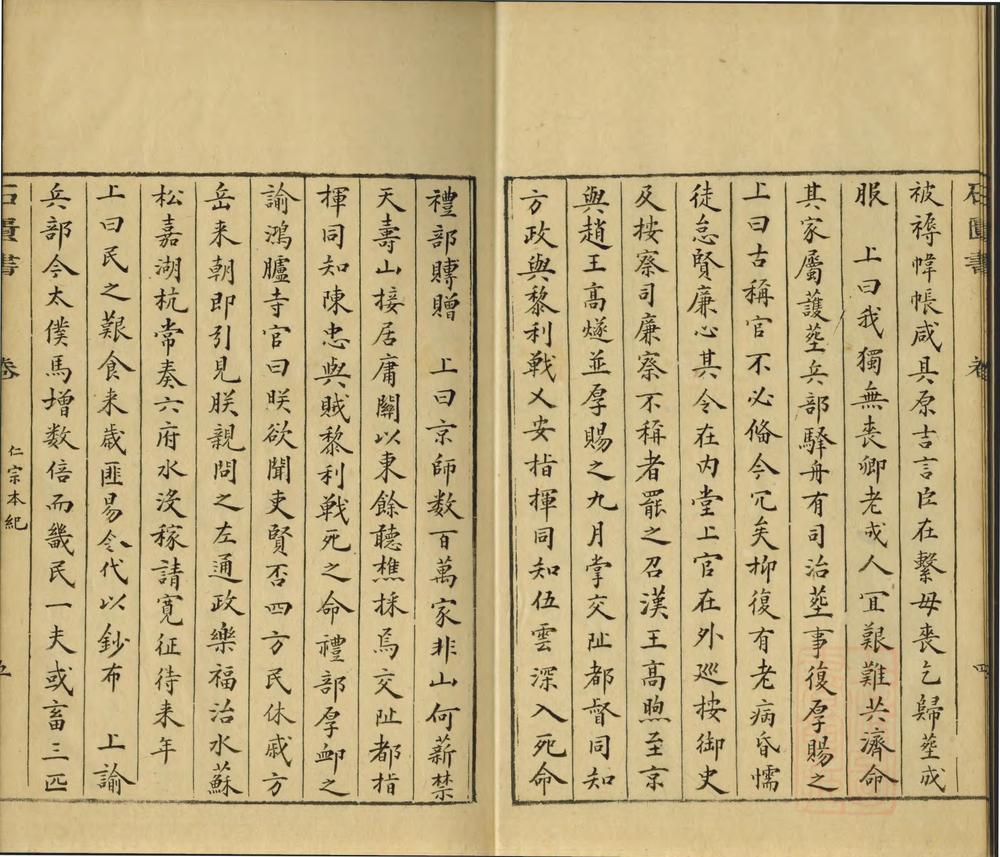 石匱書
卷
四
被褥幃帳咸其原吉言臣在繫母喪乞歸塟或
服　上曰我獨無喪卿老戎人冝艱難共濟命
其家屬護塟兵部驛舟有司治塟事復厚賜之
上曰古稱官不必俻今冗矣抑復有老病昏懦
徒怠賢廉心其令在内堂上官在外巡按御史
及按察司廉察不稱者罷之召漢王高煦至京
與趙王高燧並厚賜之九月掌交阯都督同知
方政與黎利戦乂安指揮同知伍雲深入死命
禮部賻贈　上曰京師数百萬家非山何薪禁
天壽山接居庸關以東餘聽樵採焉交阯都指
揮同知陳忠與賊黎利戦死之命禮部厚卹之
諭鴻臚寺官曰朕欲聞吏賢否四方民休戚方
岳来朝即引見朕親問之左通政樂福治水蘇
松嘉湖杭常奏六府水沒稼請寬征待来年
上曰民之艱食来歲匪易令代以鈔布　上諭
兵部今太僕馬增数倍而畿民一夫或畜三匹
石匱書
卷
仁宗本紀
五